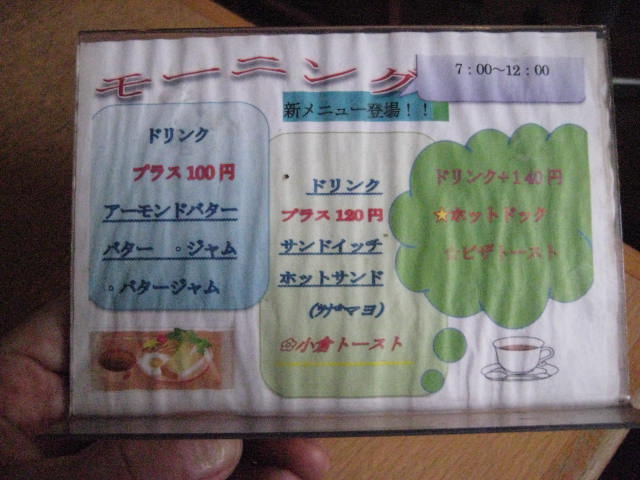 モーニング
7：00～12：00
新メニュー登場！！
ドリンク
プラス100円
アーモンドバター
バター　。ジャム
。バタージャム
ドリンク
プラス120円
サンドイッチ
ホットサンド
(ﾂﾅ*マヨ)
小倉トースト
ドリンク+140円
☆ホットドック
☆ピザトースト